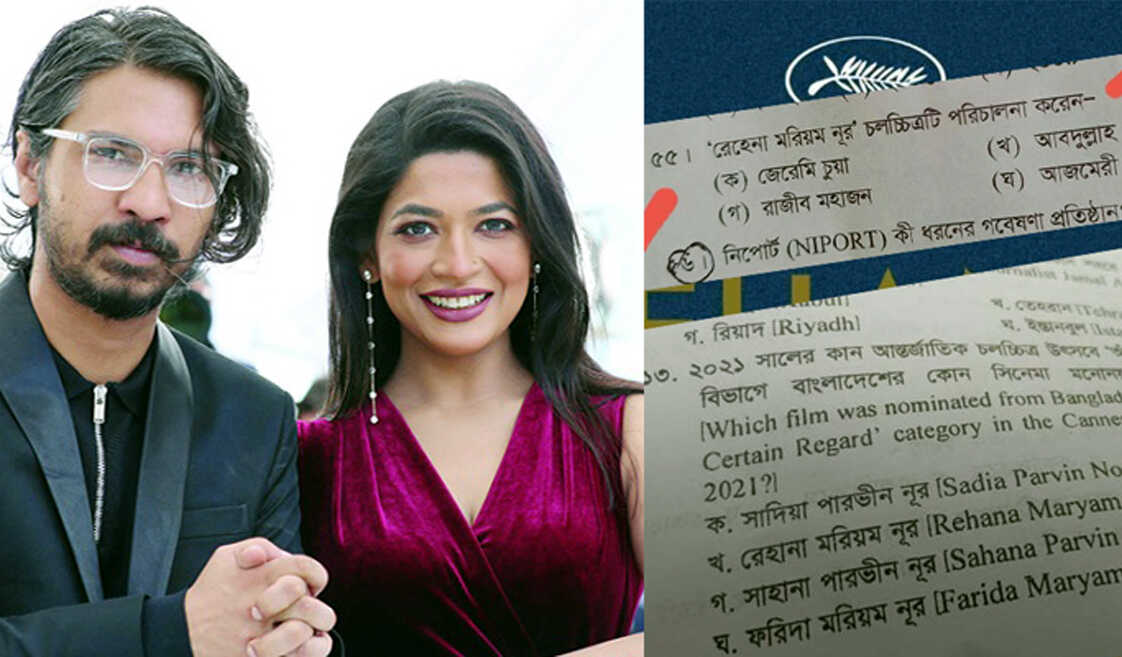 ৫৫। 'রেহেনা মরিয়ম নূর' চলচ্চিত্রটি পরিচালনা করেন–
(ক) জেরেমি চুয়া (খ) আবদুল্লাহ
(গ) রাজীব মহাজন (ঘ) আজমেরী
৫৬। নিপোর্ট (NIPORT) কী ধরনের গবেষণা প্রতিষ্ঠান
গ. রিয়াদ [Riyadh] ঘ. ইস্তানবুল
১৩. ২০২১ সালের কান আন্তর্জাতিক চলচ্চিত্র উৎসবে
বিভাগে বাংলাদেশের কোন সিনেমা
[Which film was nominated from
Certain Regard' category in the
2021?]
ক. সাদিয়া পারভীন নূর [Sadia Parvin
খ. রেহানা মরিয়ম নূর [Rehana Maryam
গ. সাহানা পারভীন নূর [Sahana Parvin
ঘ. ফরিদা মরিয়ম নূর [Farida Maryam